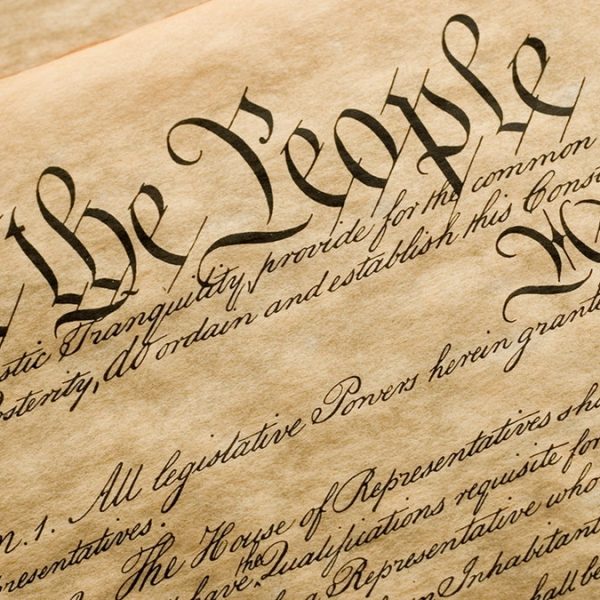 the People
stic Tranquility, provide for the common
osterity, do ordain and establish this Cons
n. 1. All legislative Powers herein grante
resentatives.
The House of Representatives sha
have the Qualifications requisite for
a Representative who
Inhabitant
hall be